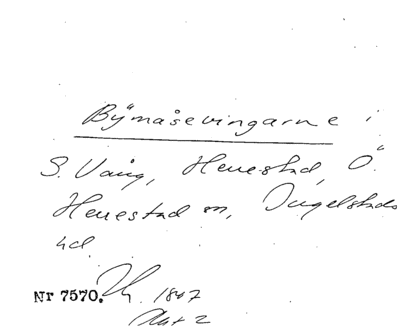 Bÿmåsevingarne i
S. Vång, Herrestad, Ö.
Herrestad sn, Ingelstads
hd.
Nr 7570. 1847